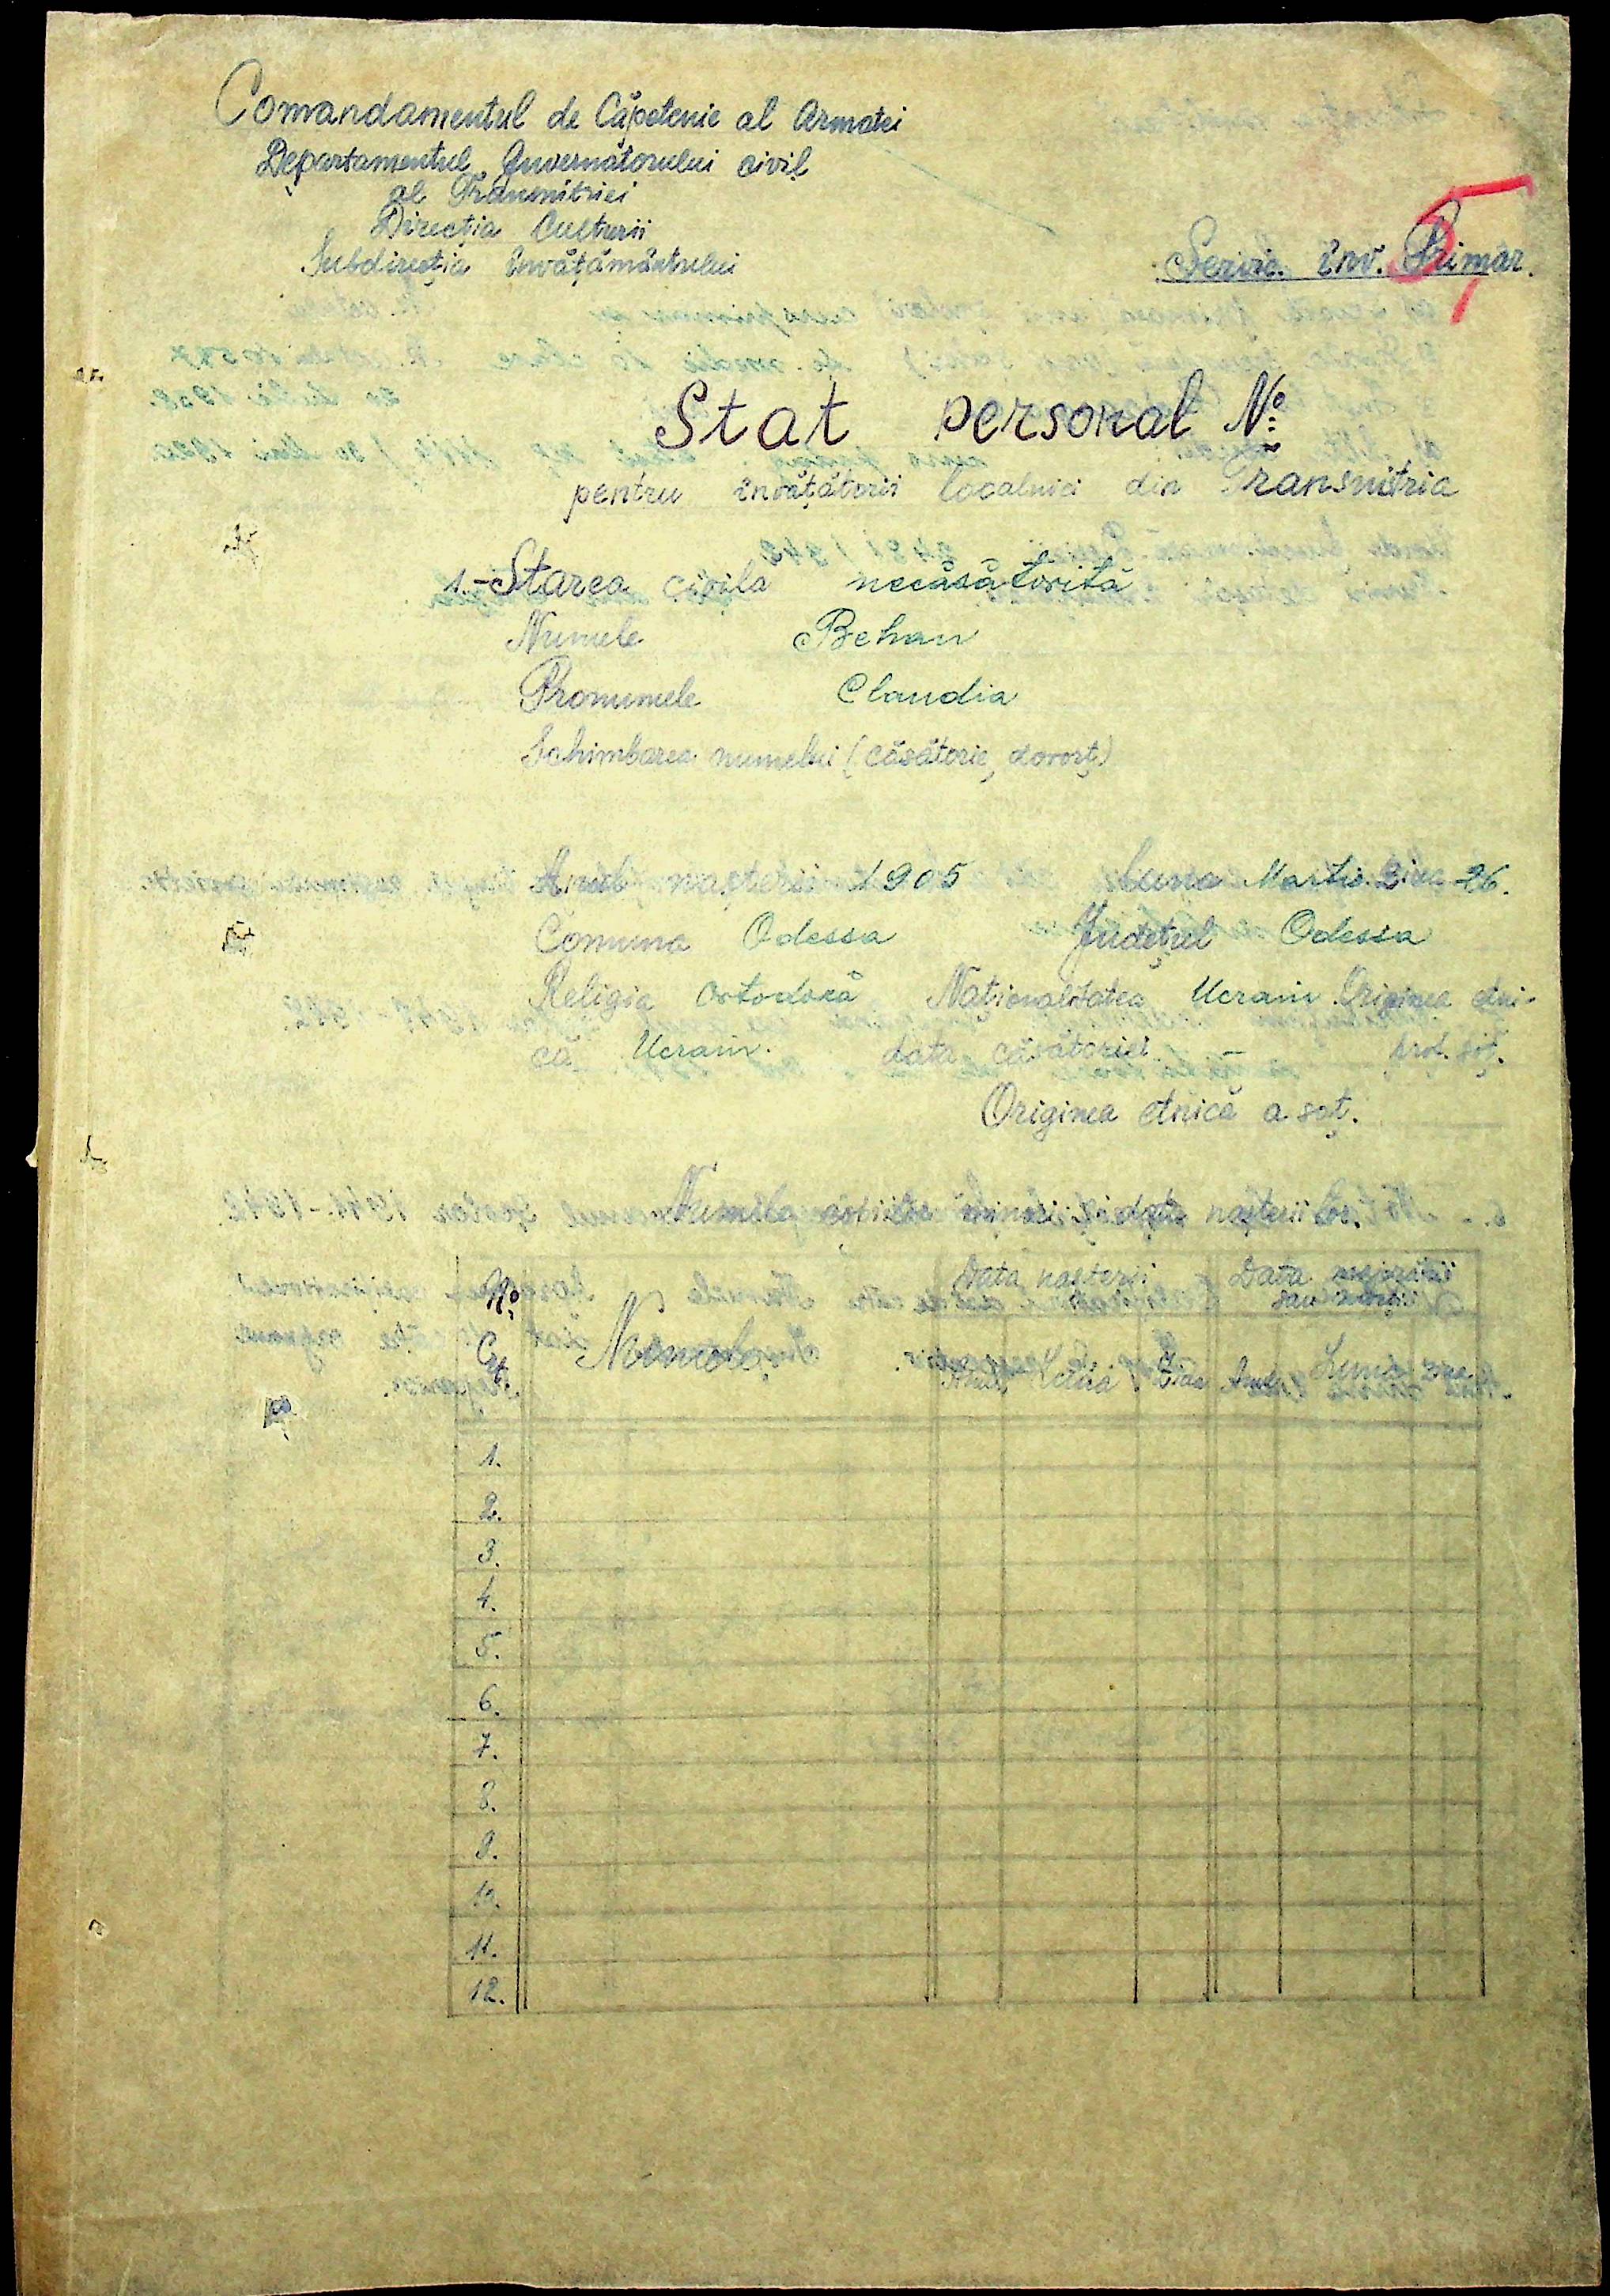 Comandamentul de Căpetenie al Armatei
Departamentul Guvernătorului civil
al Transnitriei
Direcția Culturii
Subdirecția învățământului
Servic. înv. Primar.
Stat personal No
pentru învățătorii localnici din Transnitria
1.- Starea civila necăsătorită
Numele Behan
Pronumele Claudia
Schimbarea numelui (căsătorie, dovorț)
Anul nașterii 1905 Luna Martie Ziua 26.
Comuna Odessa Județul Odessa
Religia ortodoxă Naționalitatea Ucrain Originea etni-
că Ucrain. data căsătoriei — prof. soț.
Originea etnică a soț.
Numele copiilor minori și data nașterii lor.
No Crt. Numele Data nașterii Data majorății sau morții
Anul Luna Ziua Anul Luna Ziua
1.
2.
3.
4.
5.
6.
7.
8.
9.
10.
11.
12.